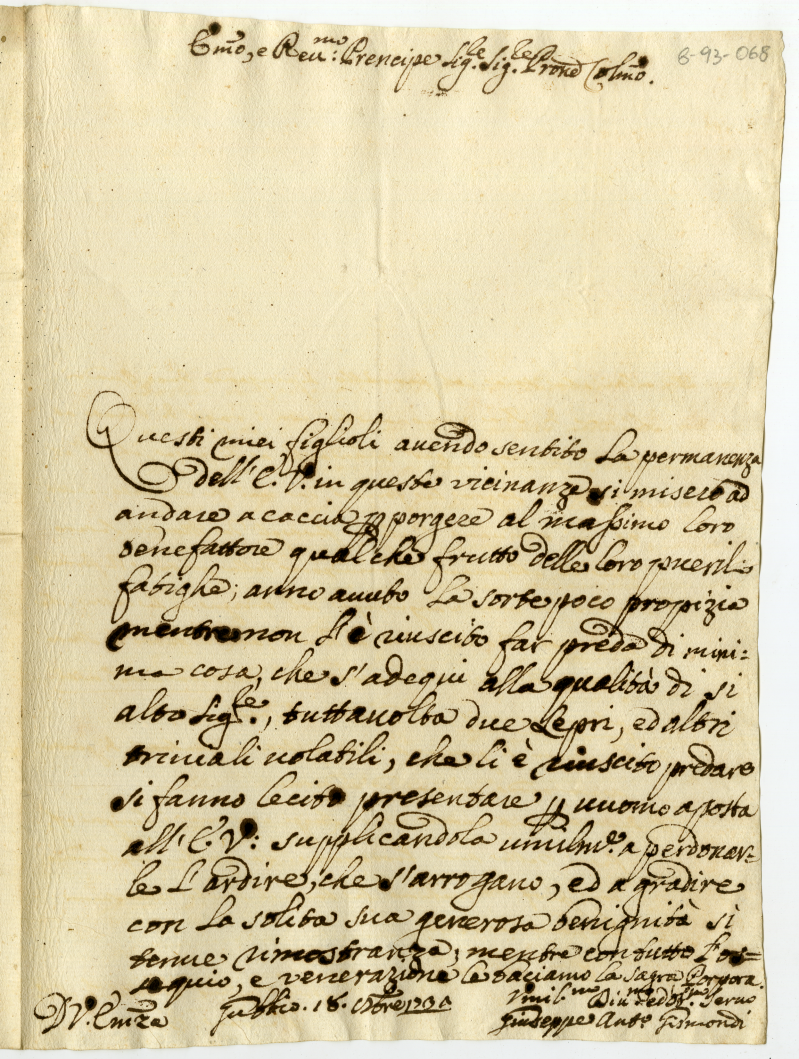 Em̃o, e Reu.mo: Prencipe Sig.le Sig.le Prone Colm̃o.
6-93-068
Questi miei figlioli auendo sentito la permanenza
dell'E. V. in queste vicinanze si misero ad
andare a caccia p porgere al massimo loro
benefattore qualche frutto delle loro puerili
fatighe; anno auuto la sorte poco propizia
mentre non l'è riuscito far preda di mini=
ma cosa, che s'adequi alla qualità di si
alto Sig.re, tuttauolta due Lepri, ed altri
triuiali uolatili, che li è riuscito predare
si fanno lecito presentare p uuomo aposta
all'E V: supplicandola umilm.e a perdonar=
le l'ardire, che s'arrogano, ed a gradire
con la solita sua generosa benignità si
tenue rimostranza; mentre con tutto l'os=
sequio, e venerazione le baciamo la sagra Porpora.
D V. Emza Gubbio. 18. 1730
Vmil.mo Diu.mo ded.mo Seruo
Giuseppe Ant.o Gismondi